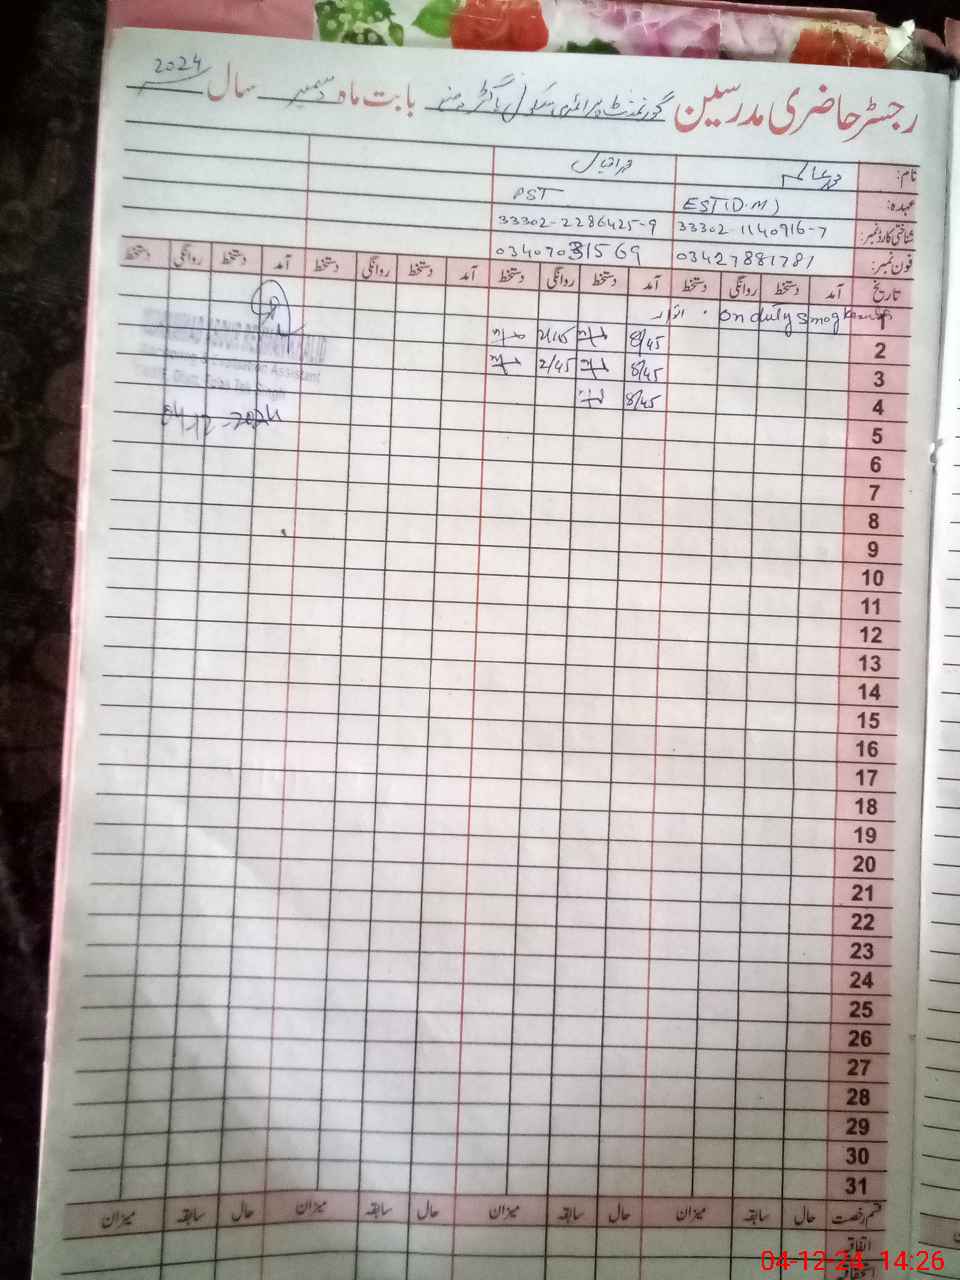 رجسٹر حاضری مدرسین گورنمنٹ پرائمری سکول بابت ماہ دسمبر سال 2024
نام: محمد اقبال
عہدہ: EST (D.M) PST
شناختی کارڈ نمبر: 33302-1140916-7 33302-2286425-9
فون نمبر: 03427881781 03407031569
تاریخ آمد دستخط روانگی دستخط آمد دستخط روانگی دستخط آمد دستخط روانگی دستخط آمد دستخط روانگی دستخط
1 on duty smog اتوار
2 8/45
3 8/45 2/45
4 8/45
Assistant
04-12-2024
5
6
7
8
9
10
11
12
13
14
15
16
17
18
19
20
21
22
23
24
25
26
27
28
29
30
31
قسم رخصت حال سابقہ میزان حال سابقہ میزان حال سابقہ میزان حال سابقہ میزان
اتفاقیہ
04-12-24 14:26